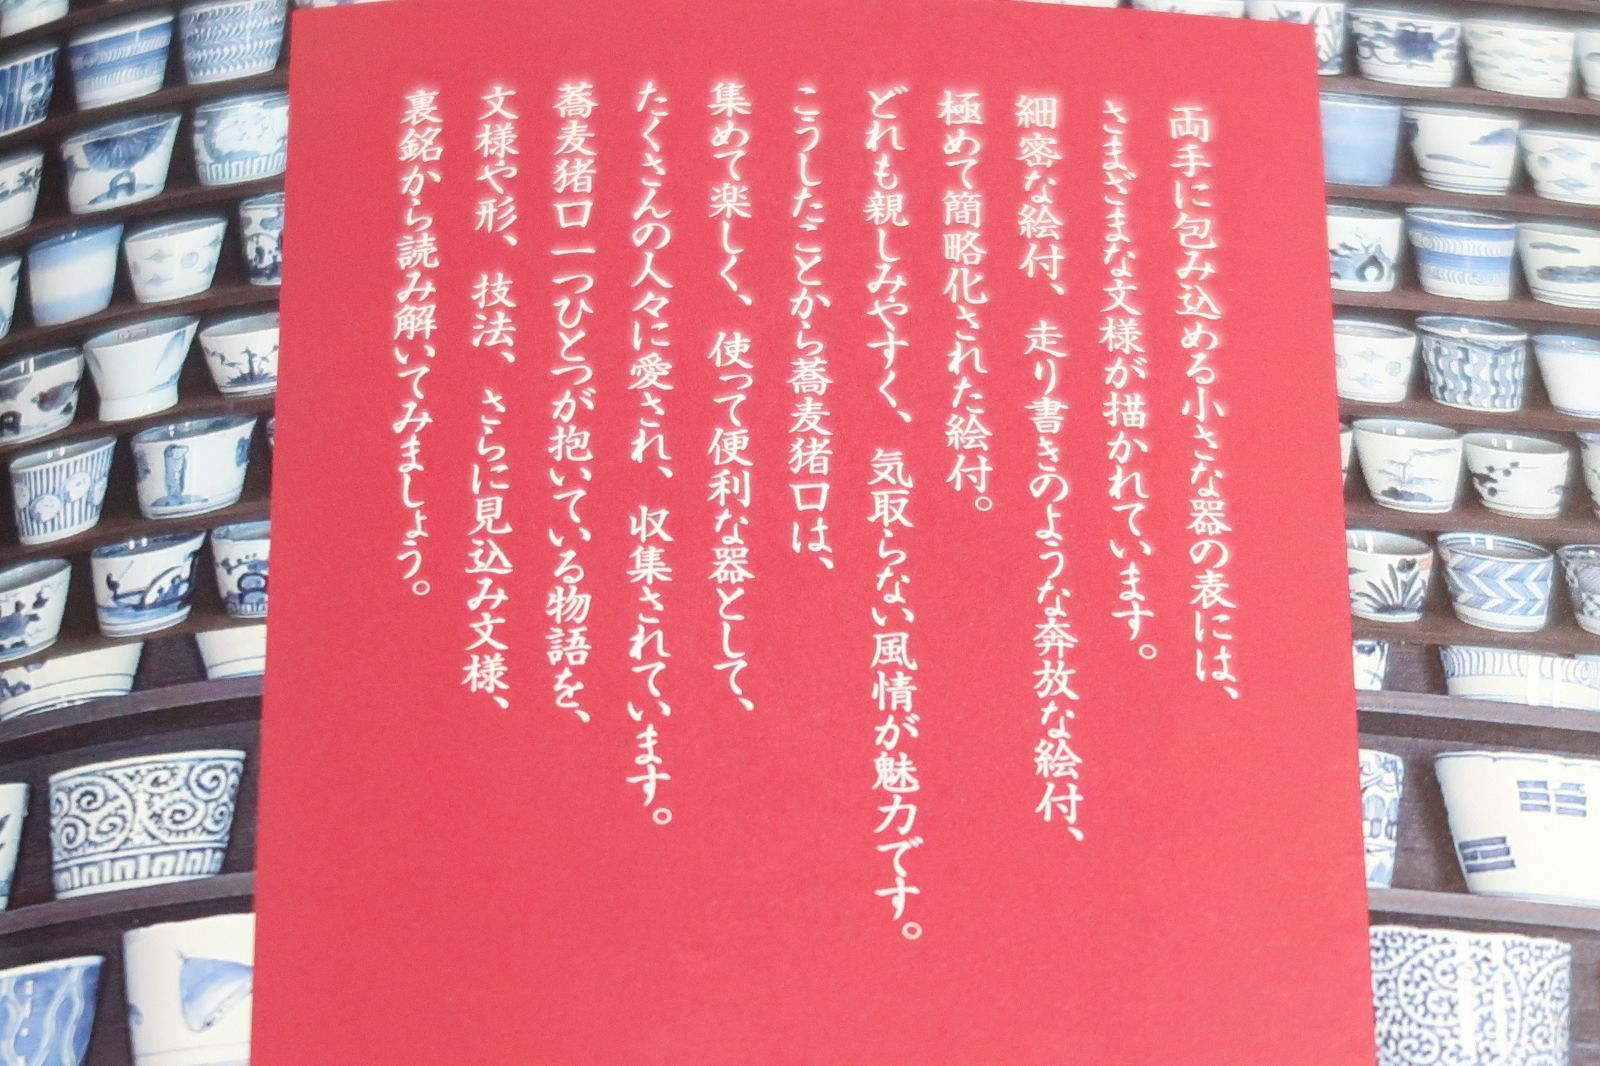 両手に包み込める小さな器の表には、
さまざまな文様が描かれています。
細密な絵付、走り書きのような奔放な絵付、
極めて簡略化された絵付。
どれも親しみやすく、気取らない風情が魅力です。
こうしたことから蕎麦猪口は、
集めて楽しく、使って便利な器として、
たくさんの人々に愛され、収集されています。
蕎麦猪口一つひとつが抱いている物語を、
文様や形、技法、さらに見込み文様、
裏銘から読み解いてみましょう。